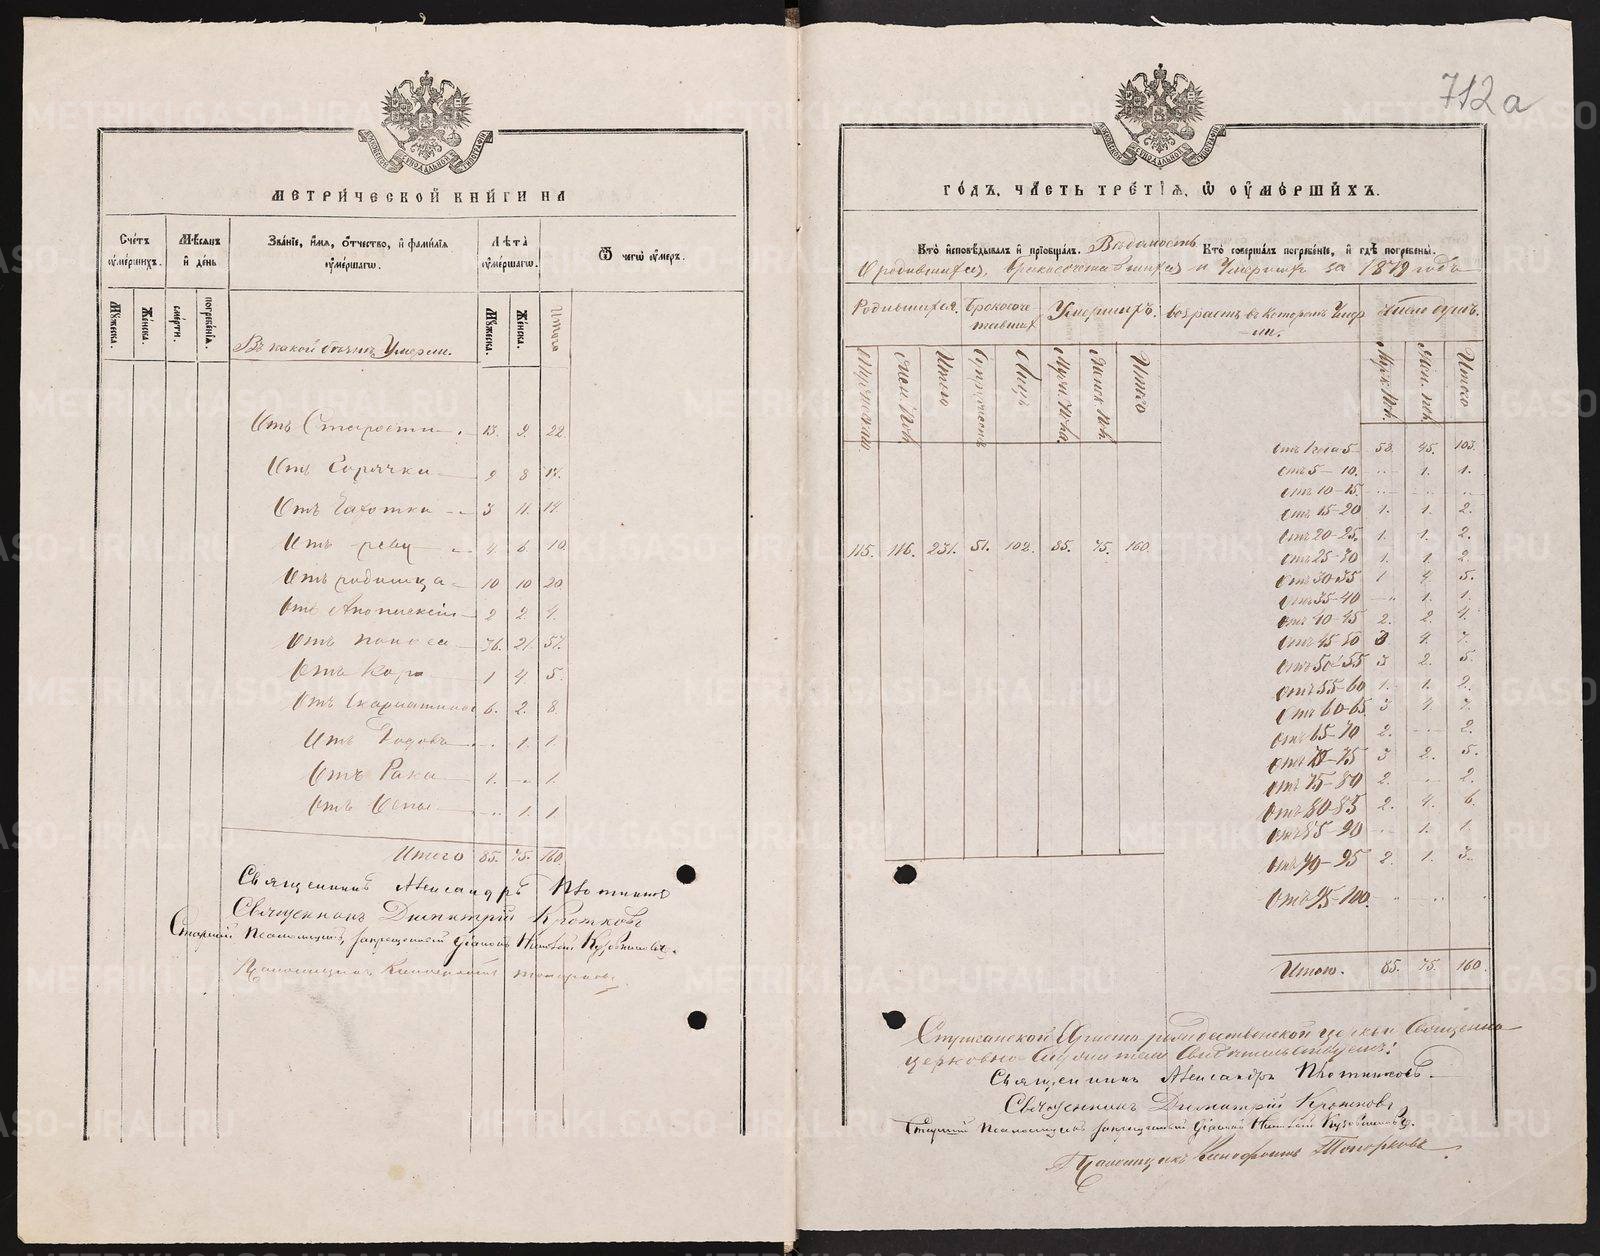 712а
МЕТРИ́ЧЕСКОЙ КНИ́ГИ НА
Сче́тъ оу҆ме́ршихъ.
Мѣ́сѧцъ и҆ де́нь
Зва́нїе, и҆́мѧ, ѻ҆́тчество, и҆ фами́лїѧ оу҆ме́ршагѡ.
Лѣ́та оу҆ме́ршагѡ.
Ѿ чегѡ̀ оу҆́меръ.
Мꙋ́жеска.
Же́нска.
сме́рти.
погребе́нїѧ.
Въ какой болезни Умерли.
Мꙋ́жеска.
Же́нска.
Итого
Отъ Старости 13. 9. 22.
Отъ Горячки 9 8 17.
Отъ Чахотки 3 11. 14.
Отъ 4 6. 10.
Отъ родимца 10 10 20.
Отъ 2 2. 4.
Отъ поноса 36. 21. 57.
Отъ Кори 1 4. 5.
Отъ Скарлатины 6. 2. 8.
Отъ Родовъ .. 1. 1
Отъ Рака 1. .. 1.
Отъ Оспы .. 1. 1
Итого 85. 75. 160.
Священникъ Александръ Плотниковъ
Священникъ Димитрій Кротковъ
Старшій Псаломщикъ, запрещенный діаконъ
Псаломщикъ Ксенофонтъ Топорковъ.
ГО́ДЪ, ЧА́СТЬ ТРЕ́ТІѦ, Ѡ҆ ОУ҆МЕ́РШИХЪ.
Кто̀ и҆сповѣ́дывалъ и҆ прїѡбща́лъ. Вѣдомость Кто̀ соверша́лъ погребе́нїе, и҆ гдѣ̀ погребе́ны.
О родившихся, бракосочетавшихся и Умершихъ за 1879 годъ
Родившихся. Бракосочетавшихся Умершихъ. возрастъ въ которомъ Умерли. Число душъ.
Мужескаго
Жен. пол.
Итого
Супружествъ
Лицъ
Муж. пола
Женск. пол.
Итого
Муж. пол.
Жен. пол.
Итого
115. 116. 231. 51. 102. 85. 75. 160.
отъ 1 года 5 58. 45. 103.
отъ 5 – 10. .. 1. 1.
отъ 10 – 15. .. .. ..
отъ 15 – 20 1. 1. 2.
отъ 20 – 25. 1. 1. 2.
отъ 25 – 30 1. 1. 2.
отъ 30 – 35 1 4. 5.
отъ 35 – 40 .. 1. 1.
отъ 40 – 45 2. 2. 4.
отъ 45 – 50 3 4. 7.
отъ 50 – 55 3 2. 5.
отъ 55 – 60 1. 1. 2.
отъ 60 – 65. 3 4. 7.
отъ 65 – 70 2. .. 2.
отъ 70 – 75 3 2. 5.
отъ 75 – 80 2. .. 2.
отъ 80 – 85 2. 4. 6.
отъ 85 – 90 .. 1. 1.
отъ 90 – 95 2. 1. 3.
отъ 95 – 100. .. .. .
Итого. 85. 75. 160.
Христо рождественской церкви Священно
церковно служители Свидѣтельствуемъ:
Священникъ Александръ Плотниковъ.
Священникъ Димитрій Кротковъ
Старшій Псаломщикъ запрещенный діаконъ
Псаломщикъ Ксенофонтъ Топорковъ.
METRIKI.GASO-URAL.RU